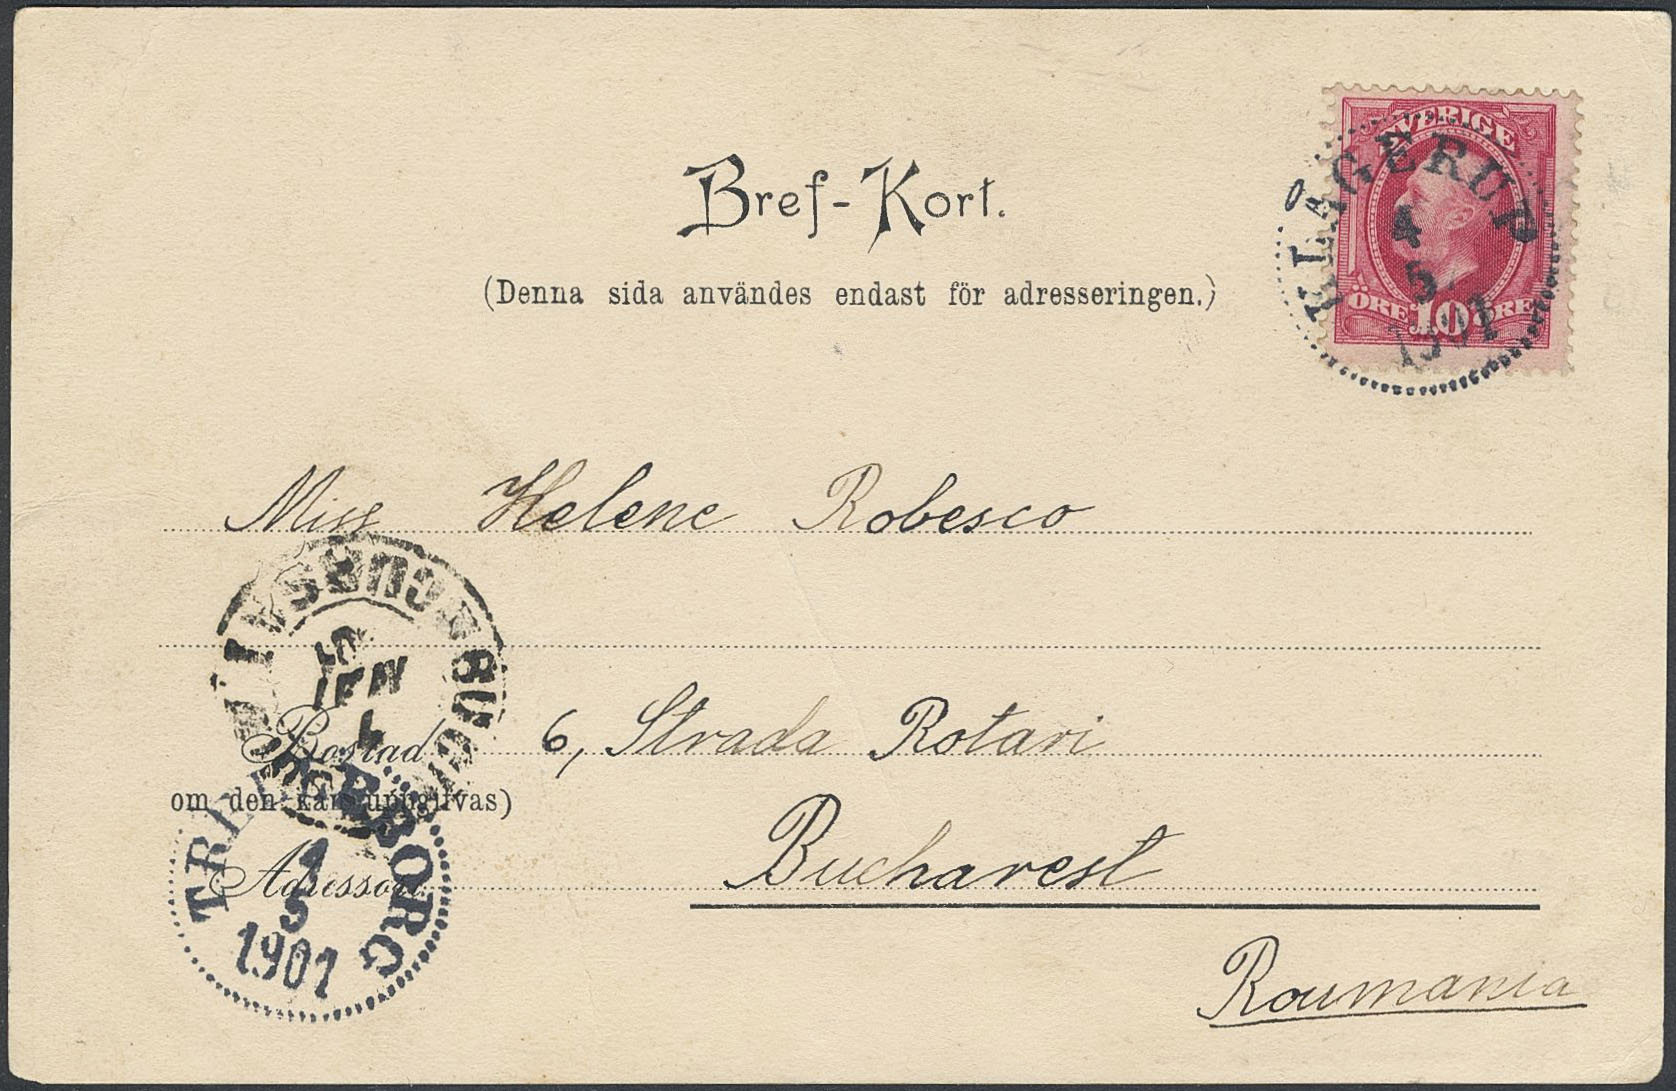 Bref-Kort.
(Denna sida användes endast för adresseringen.)
SVERIGE
ÖRE 10 ÖRE
KLÅGERUP
4
5
1901
Miss Helene Robesco
Bostad 6, Strada Rotari
om den kan uppgifvas)
Bucharest
Roumania
TRELLEBORG
4
5
1901